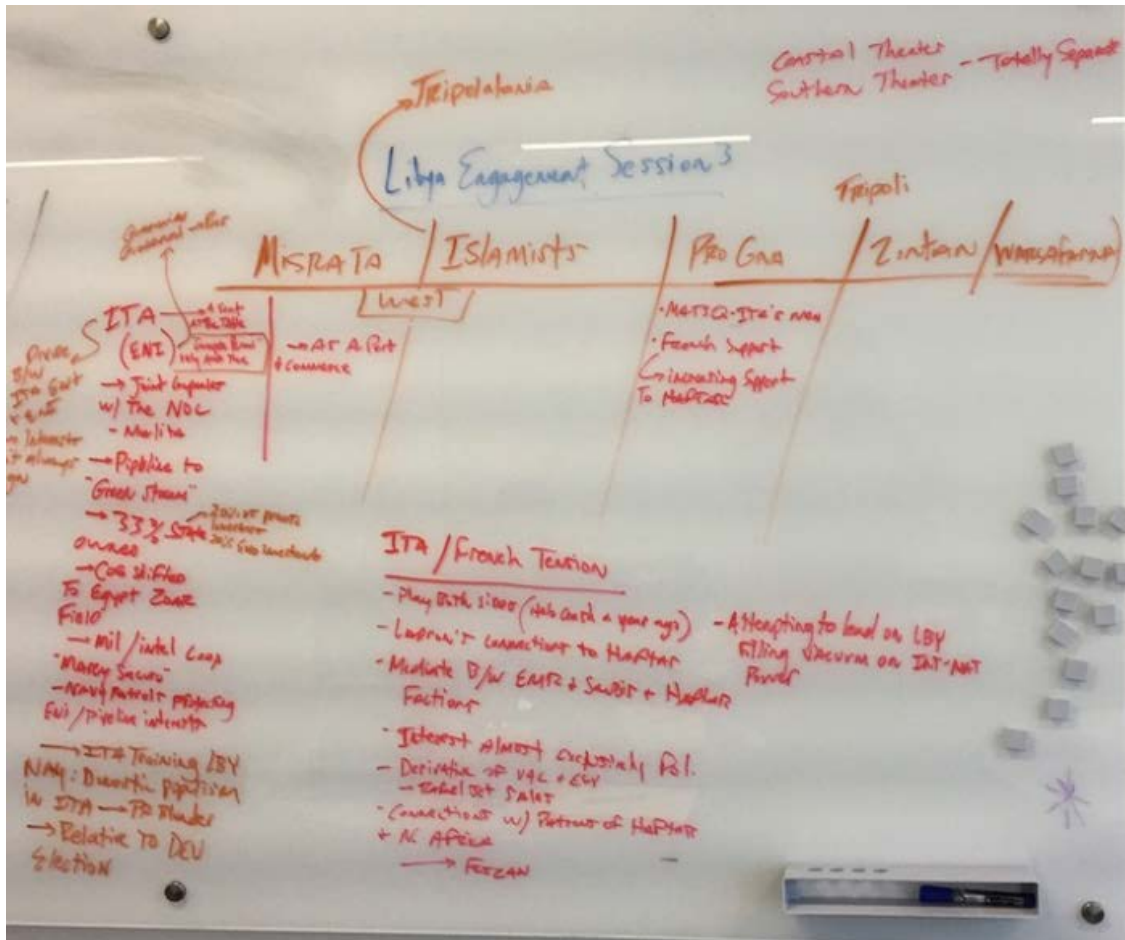 Coastal Theater
Southern Theater -- Totally Separate
Tripolatania
Libya Engagement Session 3
Tripoli
MISRATA / ISlamists / PRO GNA / Zintan / WARSAFANA
West
ITA
(ENI)
→ A Seat
At The Table
→ AS A Port
+ Commerce
→ Joint
w/ The NOC
- Mellita
→ Pipeline to
"Green Stream"
→ 33% State
owned
→ COG shifted
To Egypt Zohr
Field
→ Mil/intel Coop
"Mare Sicuro"
- Navy Patrols protecting
ENI/Pipeline interests
→ ITA Training LBY
NAV: Domestic Populism
in ITA →
→ Relative To DEC
Election
B/W
ITA Govt
Interests
always
· ITA's man
· French Support
↳ increasing Support
To HAFTAR
ITA/French Tension
- Play Both sides (a year ago)
- connections to Haftar
- Mediate B/W EMR + Saudis + HAFTAR
Factions
- Interest Almost exclusively Pol.
- Derivative of UAE + EGY
- Jet Sales
- Connections w/ Patrons of HAFTAR
+ N. Africa
→ FEZZAN
- Attempting to lead on LBY
Filling Vacuum on INT-NAT
Power